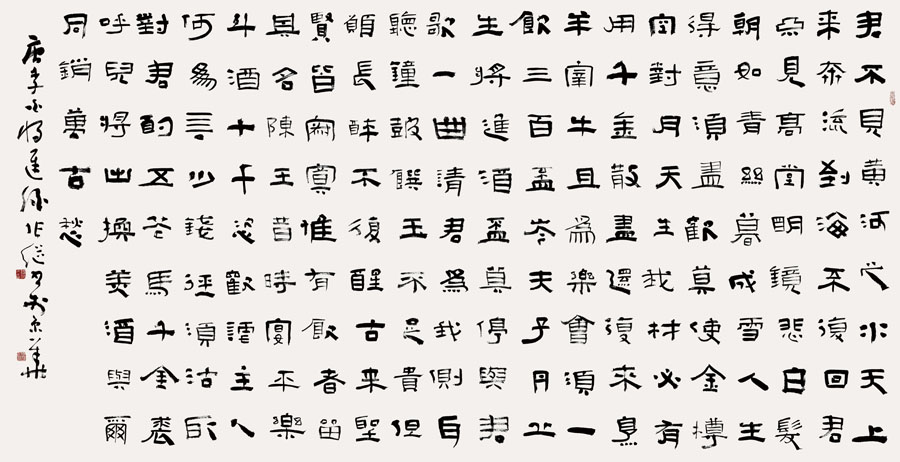 君不見黃河之水天上
來奔流到海不復回君
不見高堂明鏡悲白髮
朝如青絲暮成雪人生
得意須盡歡莫使金樽
空對月天生我材必有
用千金散盡還復來烹
羊宰牛且為樂會須一
飲三百盃岑夫子丹丘
生將進酒盃莫停與君
歌一曲請君為我側耳
聽鐘鼓饌玉不足貴但
願長醉不復醒古來聖
賢皆寂寞惟有飲者留
其名陳王昔時宴平樂
斗酒十千恣歡謔主人
何為言少錢徑須沽取
對君酌五花馬千金裘
呼兒將出換美酒與爾
同銷萬古愁
唐李白將進